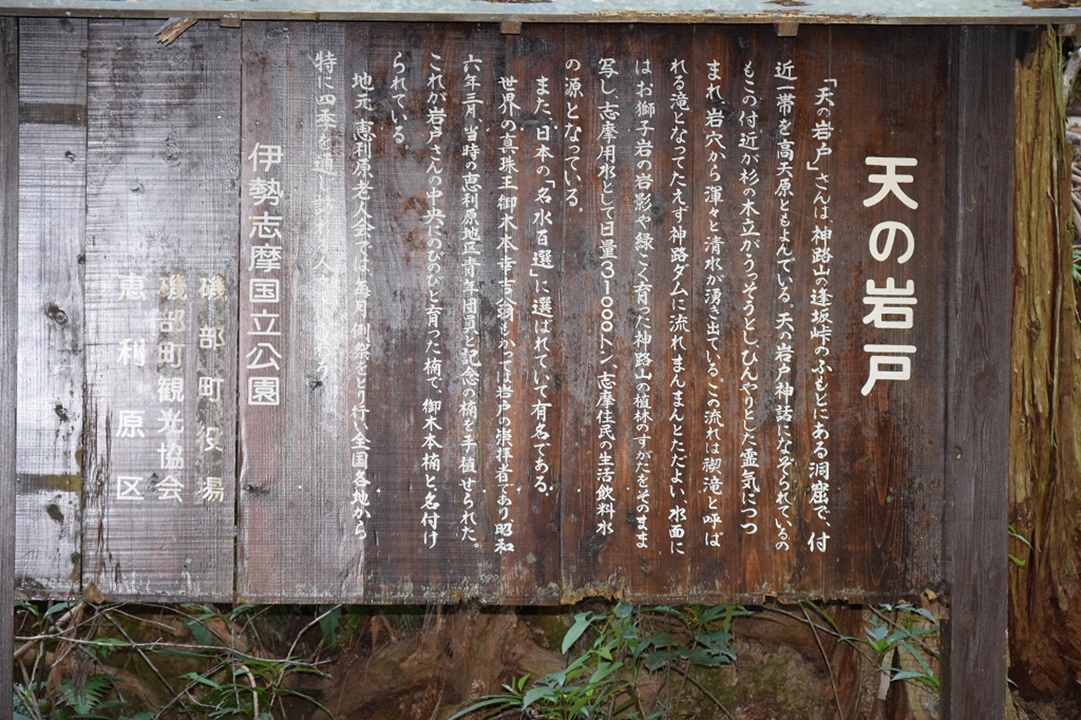 天の岩戸
「天の岩戸」さんは、神路山の逢坂峠のふもとにある洞窟で、付
近一帯を高天原ともよんでいる。天の岩戸神話になぞられているの
もこの付近が杉の木立がうっそうとし、ひんやりとした霊気につつ
まれ、岩穴から渾々と清水が湧き出ている。この流れは禊滝と呼ば
れる滝となってたえず神路ダムに流れまんまんとただよい、水面に
はお獅子岩の岩影や緑こく育った神路山の植林のすがたをそのまま
写し、志摩用水として日量31000トン、志摩住民の生活飲料水
の源となっている。
また、日本の「名水百選」に選ばれていて有名である。
世界の真珠王御木本幸吉翁もかつては岩戸の崇拝者であり昭和
六年三月、当時の恵利原地区青年団員と記念の楠を手植せられた。
これが岩戸さんの中央にのびのびと育った楠で、御木本楠と名付け
られている。
地元、恵利原老人会では、毎月、例祭をとり行い全国各地から
特に四季を通し訪れ人
伊勢志摩国立公園
磯部町役場
磯部町観光協会
恵利原区